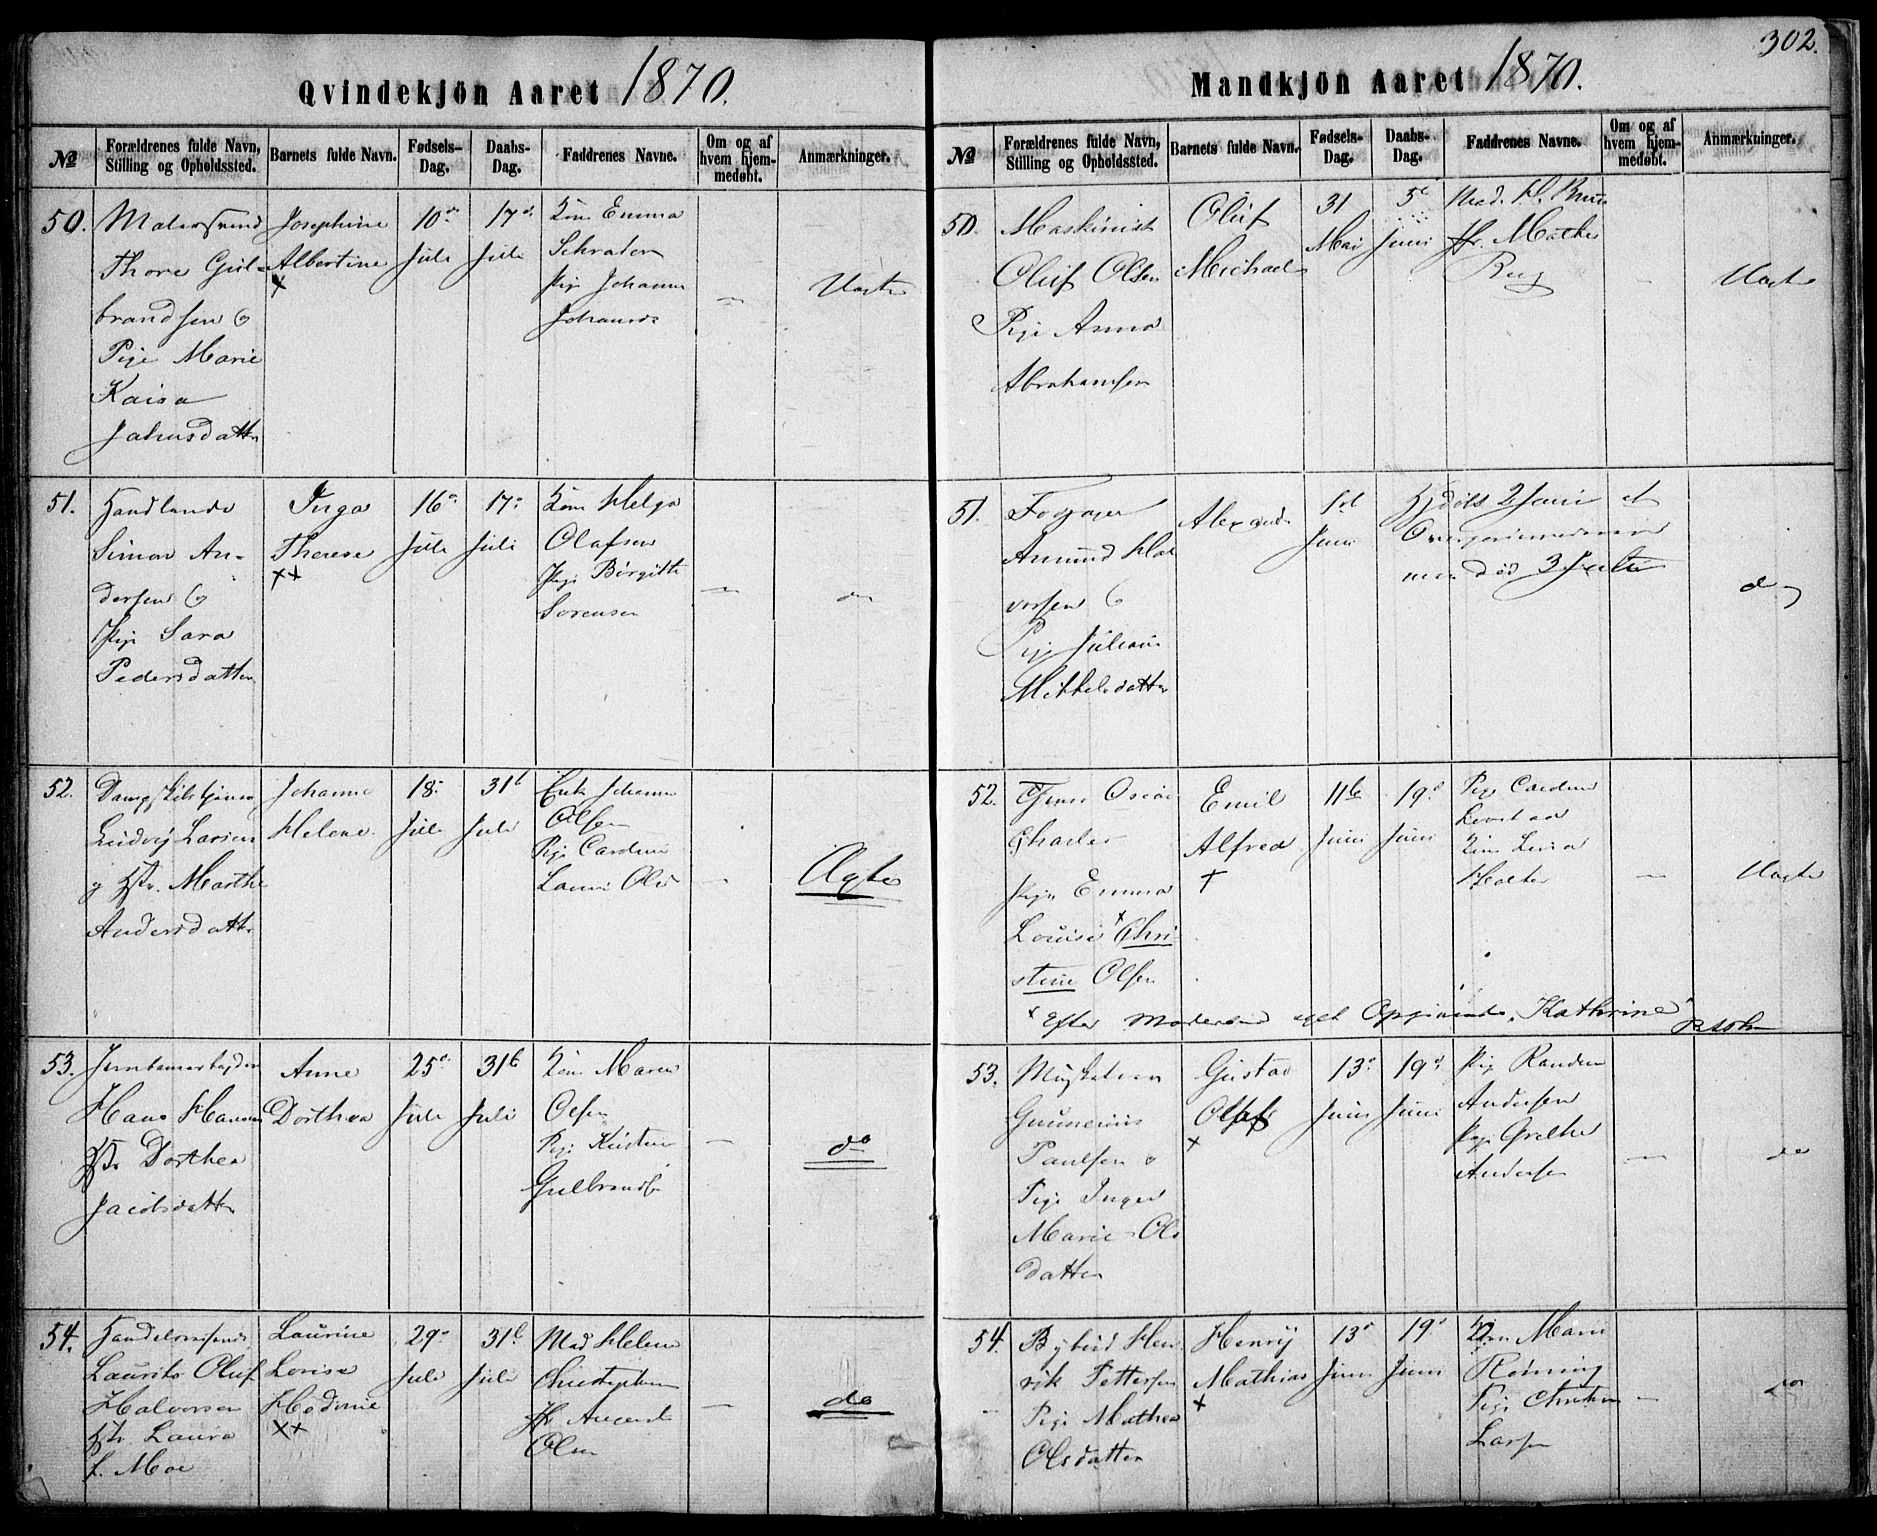 302.
Qvindekjön Aaret 1870.
№
Forældrenes fulde Navn, Stilling og Opholdssted.
Barnets fulde Navn.
Fødsels-Dag.
Daabs-Dag.
Faddrenes Navne.
Om og af hvem hjemmedøbt.
Anmærkninger.
50.
Malersvend
Thore Gul-
brandsen &
Pige Marie
Kaisa
Johnsdatter
Josephine
Albertine
×
10de
Juli
17de
Juli
Kone Emma
Pige Johanne
—
Uægte
51.
Handlende
Simon An-
dersen &
Pige Sara
Pedersdatter
Inga
Therese
××
16de
Juli
17de
Juli
Kone Helga
Olafsen
Pige Birgitte
Sørensen
—
do
52.
Ludvig Larsen
og Hstr. Marthe
Andersdatter
Johanne
Helene
18de
Juli
31te
Juli
Enke Johanne
Olsen
Pige Caroline
—
Ægte
53.
Hans Hansen
Hstr Dorthea
Jacobsdatter
Anne
Dorthea
25de
Juli
31te
Juli
Kone Maren
Olsen
Pige Kirsten
Gulbrands.
—
do
54.
Laurits Oluf
Halvorsen
Hstr. Laura
f. Moe
Laurine
Lovise
Hedvine
××
29de
Juli
31te
Juli
Mad Helene
Christophersen
Hr August
Olsen
—
do
Mandkjön Aaret 1870.
№
Forældrenes fulde Navn, Stilling og Opholdssted.
Barnets fulde Navn.
Fødsels-Dag.
Daabs-Dag.
Faddrenes Navne.
Om og af hvem hjemmedøbt.
Anmærkninger.
50.
Maskinist
Oluf Olsen
Pige Anna
Abrahamsen
Oluf
Michael
31
Mai
5te
Juni
—
Uægte
51.
Amund Hal
vorsen &
Pige Juliane
Mikkelsdatter
Alexander
1ste
Juni
Hjdøbt 2 Juni af
død 3 Juli
do
52.
Oscar
Charles
Pige Emma
Louise × Chri-
stine Olsen
Emil
Alfred
+
11te
Juni
19de
Juni
Pige Caroline
Holter
—
Uægte
× Efter Moderens eget Opgivende „Kathrine"
53.
Gunnerius
Paulsen &
Pige Inger
Marie Ols
datter
Gustav
Olaf
×
13de
Juni
19de
Juni
Pige Randine
Andersen
Pige Grethe
Andersen
—
do
54.
Bybud Hen
rik Pettersen
Pige Mathea
Olsdatter
Henry
Mathias
×
13de
Juni
19de
Juni
Kone Marie
Rønning
Pige Christine
Larsen
—
do